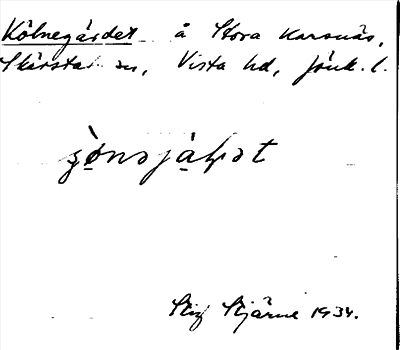 Kölnegärdet å Stora Karsnäs,
Skärstad sn, Vista hd, Jönk. l.
Stig Stjärne 1934.